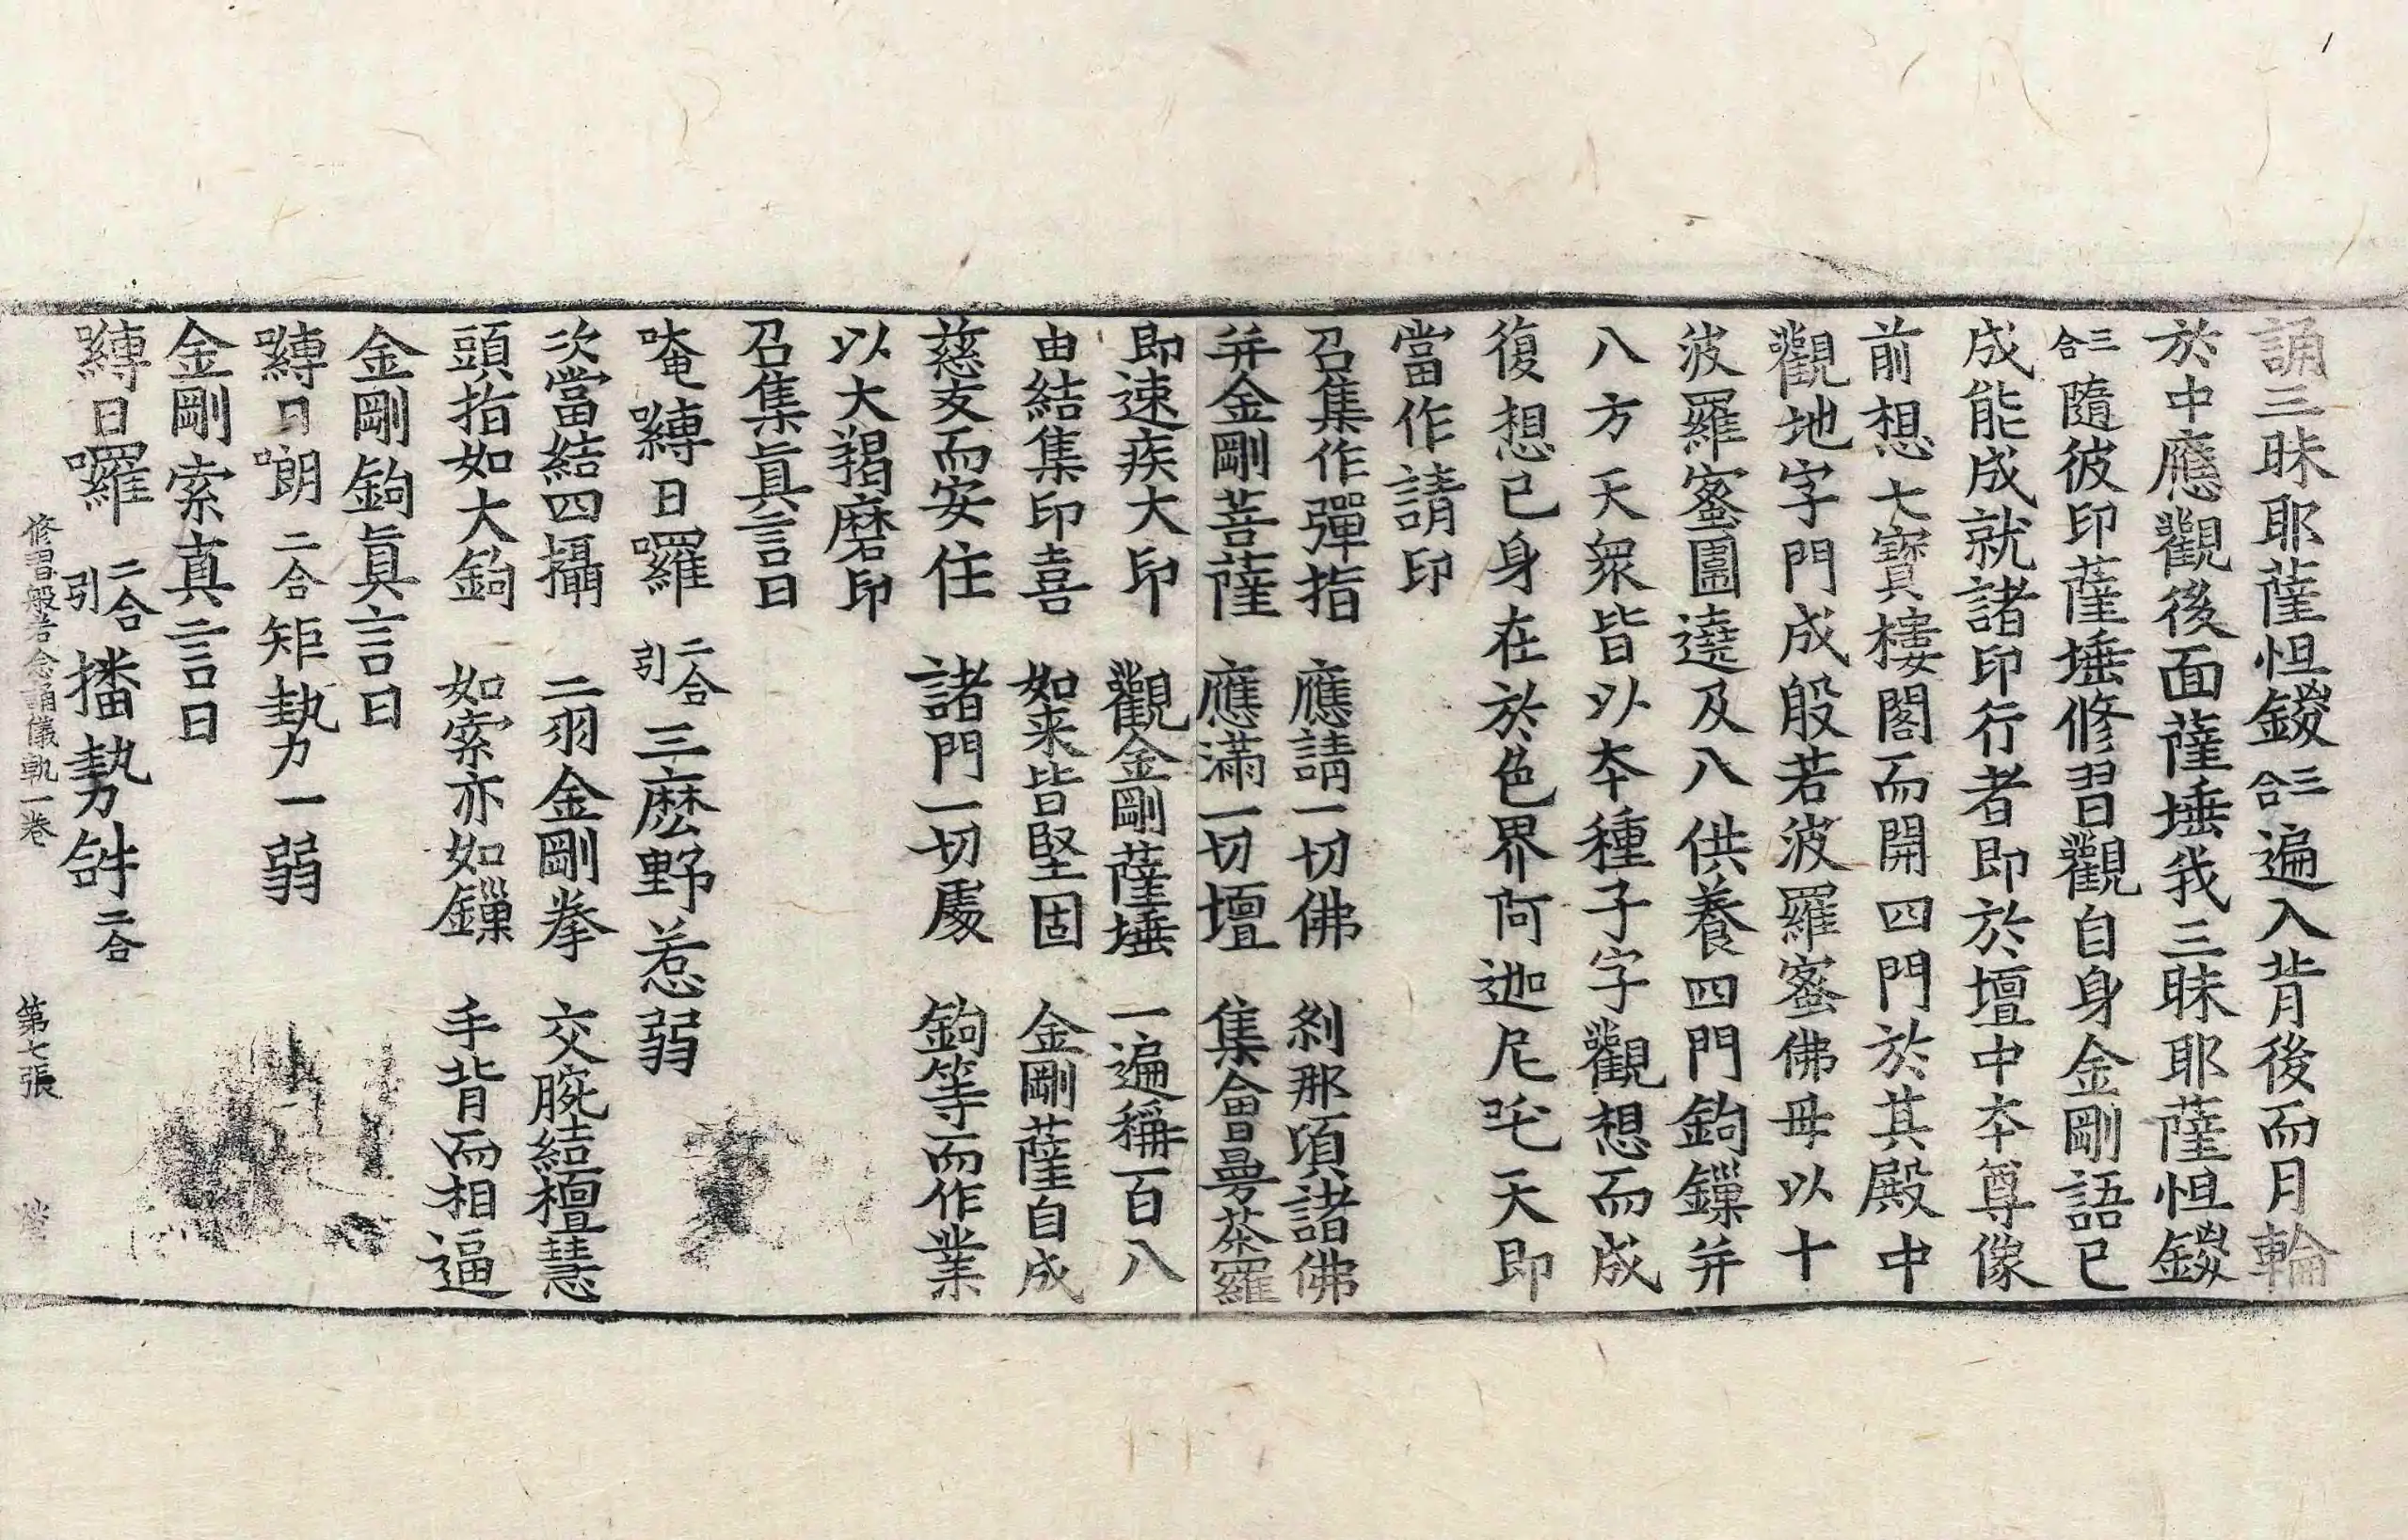 誦三昧耶薩怛鑁三合遍入背後而月輪
於中應觀後面薩埵我三昧耶薩怛鑁
三合隨彼印薩埵修習觀自身金剛語已
成能成就諸印行者即於壇中夲尊像
前想七寶樓閣而開四門於其殿中
觀地字門成般若波羅蜜佛母以十
波羅蜜圍遶及八供養四門鉤鏁并
八方天衆皆以夲種子字觀想而成
復想已身在於色界阿迦尼吒天即
當作請印
召集作彈指　應請一切佛　剎那頃諸佛
并金剛菩薩　應滿一切壇　集會曼茶羅
即速疾大印　觀金剛薩埵　一遍稱百八
由結集印喜　如来皆堅固　金剛薩自成
慈友而安住　諸門一切處　鉤等而作業
以大羯磨印
召集真言曰
唵嚩日囉二合引三麽野惹弱
次當結四攝　二羽金剛拳　交腕結檀慧
頭指如大鉤　如索亦如鏁　手背而相逼
金剛鉤真言曰
嚩日啷二合矩㔟一弱
金剛索真言曰
嚩日囉二合引播㔟𤙖二合
修習般若念誦儀軌一卷　第七張